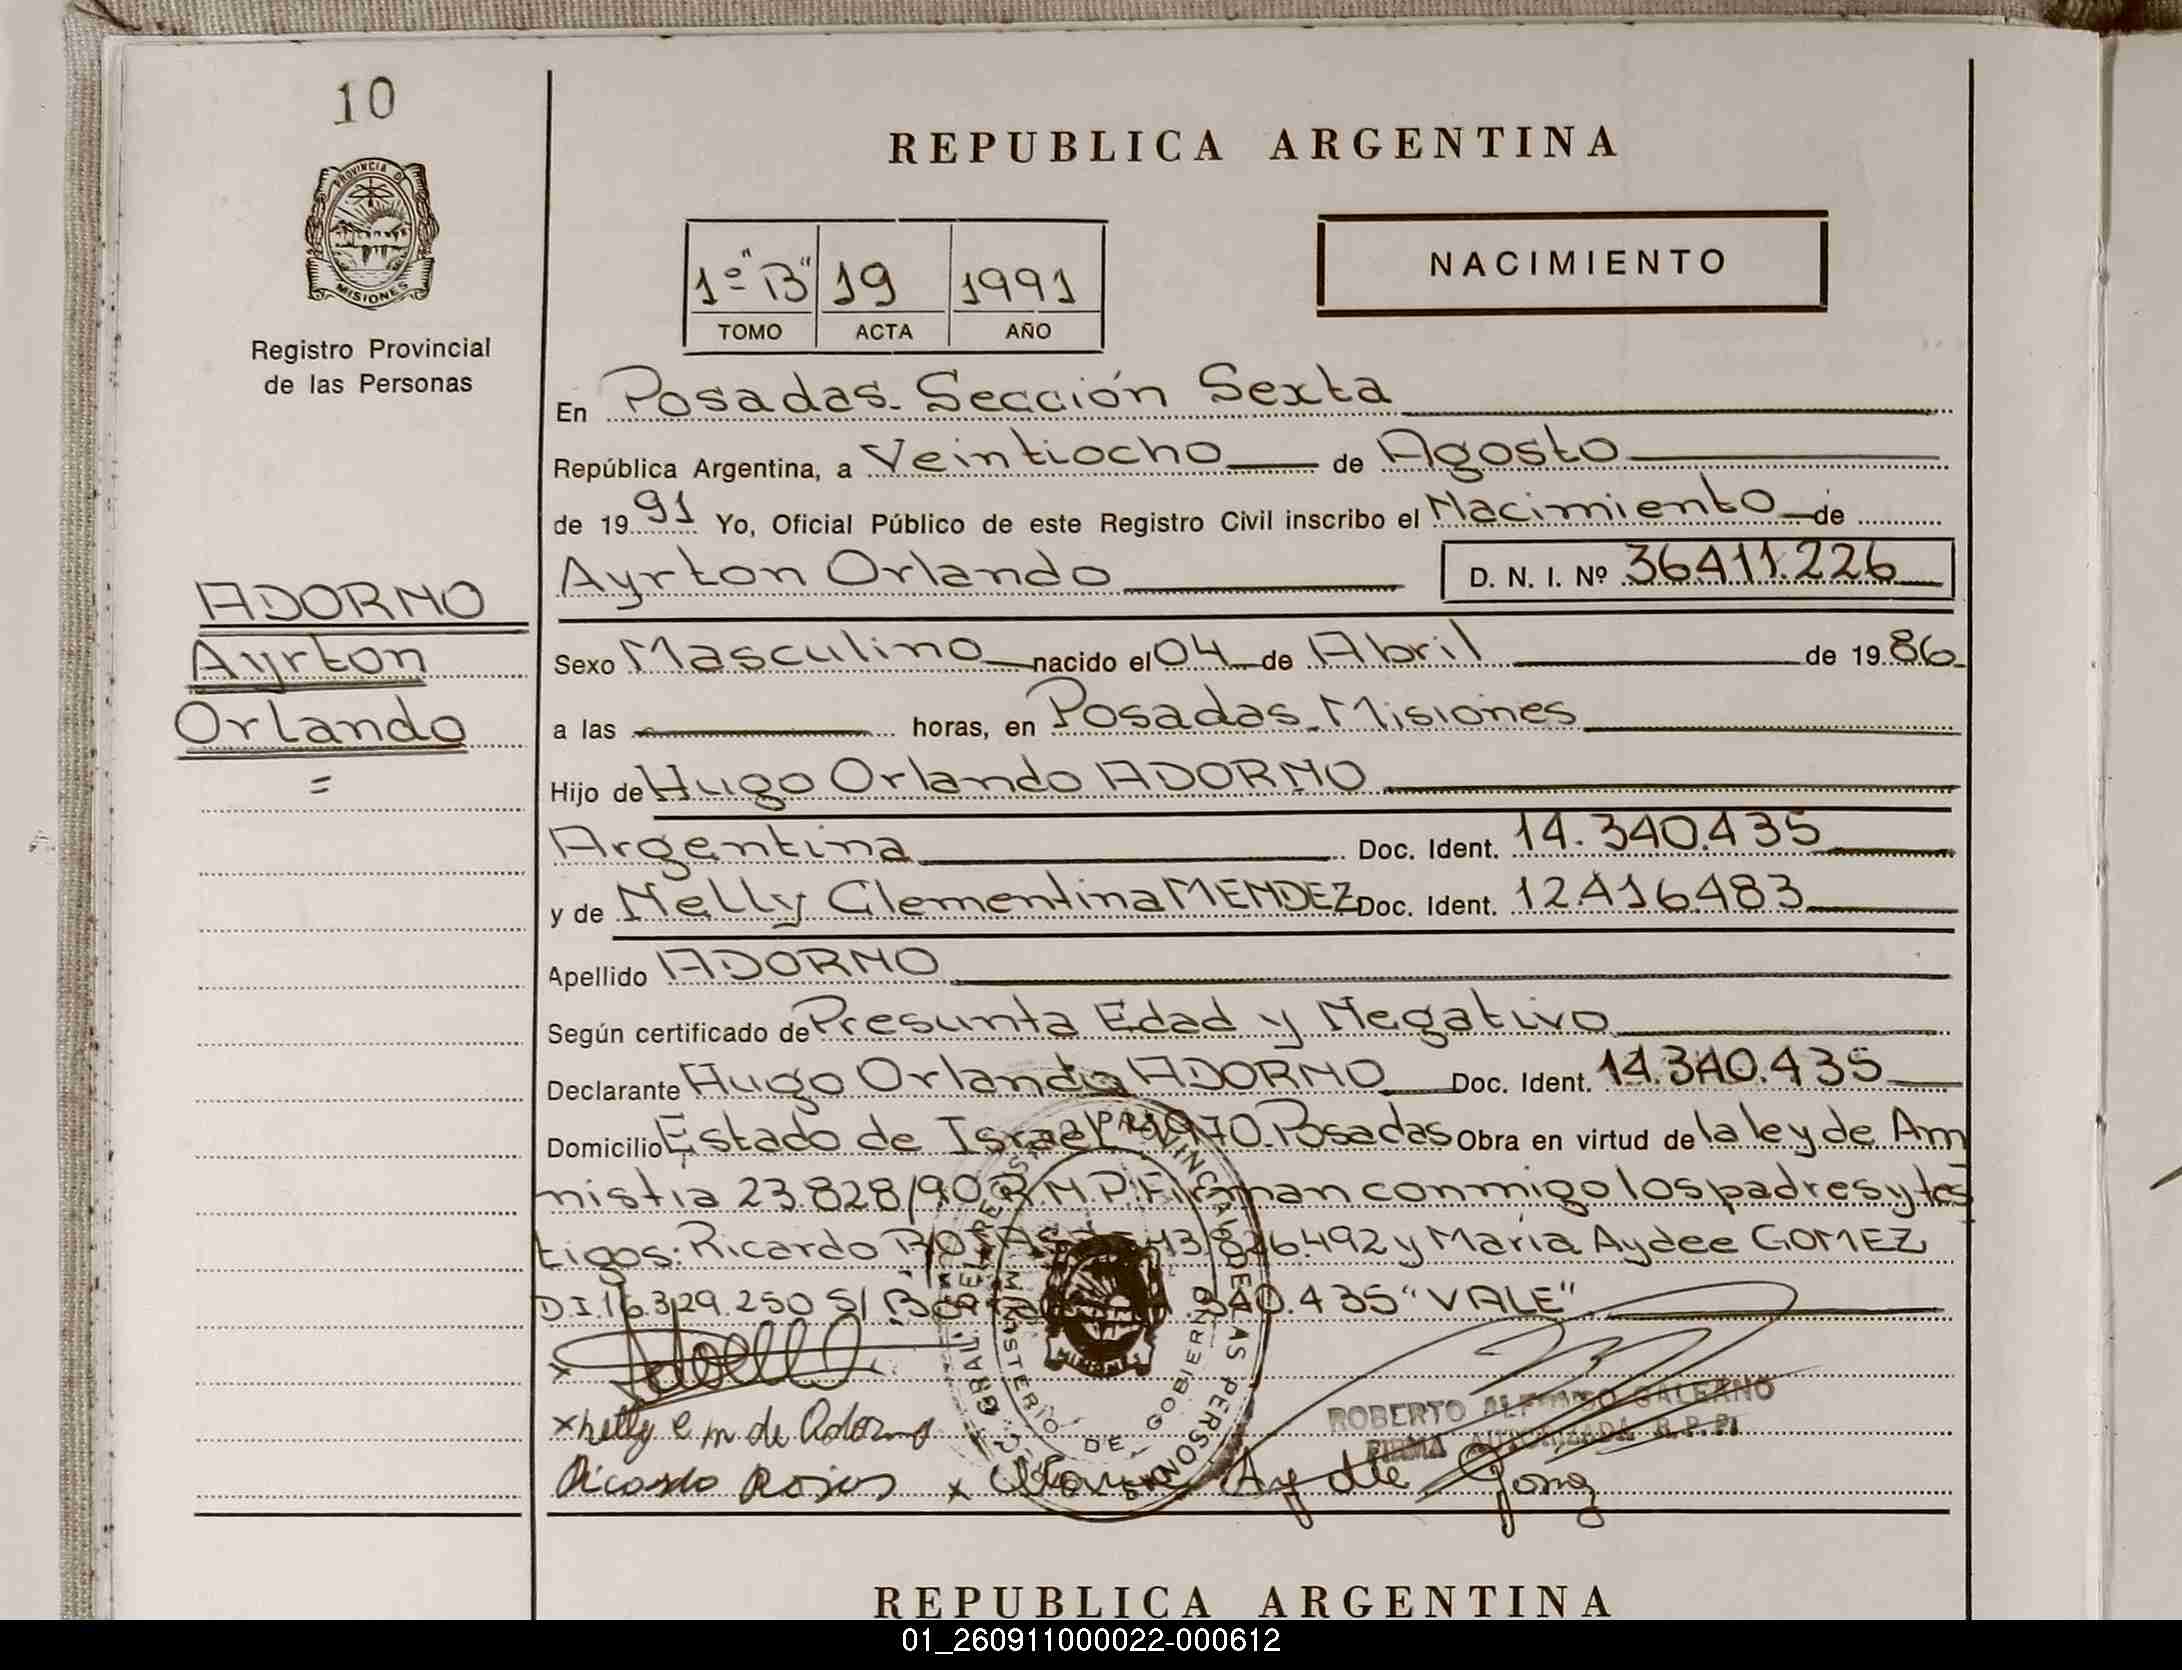 10
PROVINCIA D
MISIONES
Registro Provincial
de las Personas
ADORNO
Ayrton
Orlando
=
REPUBLICA ARGENTINA
1º "B" 19 1991
TOMO ACTA AÑO
NACIMIENTO
En Posadas. Sección Sexta
República Argentina, a Veintiocho de Agosto
de 1991 Yo, Oficial Público de este Registro Civil inscribo el Nacimiento de
Ayrton Orlando D. N. I. Nº 36411.226
Sexo Masculino nacido el 04 de Abril de 1986
a las horas, en Posadas. Misiones
Hijo de Hugo Orlando ADORNO
Argentina Doc. Ident. 14.340.435
y de Nelly Clementina MENDEZ Doc. Ident. 12.416.483
Apellido ADORNO
Según certificado de Presunta Edad y Negativo
Declarante Hugo Orlando ADORNO Doc. Ident. 14.340.435
Domicilio Estado de Israel Posadas Obra en virtud de la ley de Am
nistia 23.828/90 Firman conmigo los padres y tes
tigos: Ricardo 826.492 y María Aydee GOMEZ
D.I. 16.329.250 S/ 340.435 "VALE"
x nelly e m de Adorno
ROBERTO ALFONSO GALEANO
FIRMA AUTORIZADA R.P.P.
Ricardo Rojas x Maria Aydee Gomez
MINISTERIO DE GOBIERNO
MISIONES
REPUBLICA ARGENTINA
01_260911000022-000612